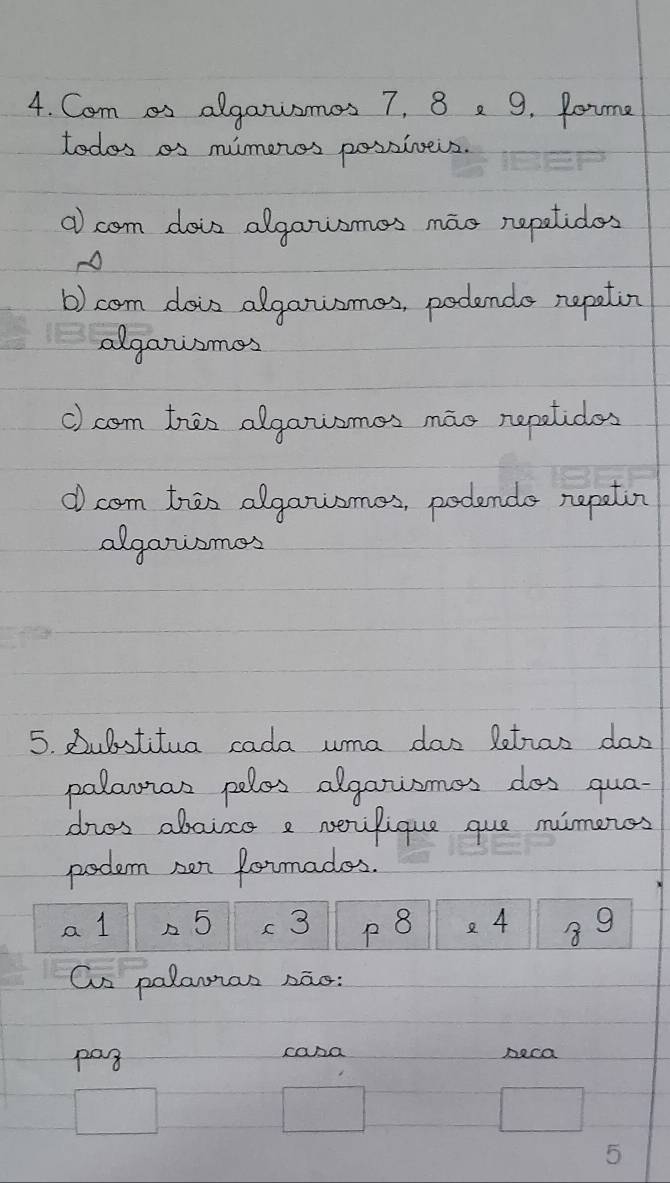 4. Com os algarismos 7, 8 e 9, forme
todos os números possíveis.
IBEP
a) com dois algarismos não repetidos
b) com dois algarismos, podendo repetir
IBEP
algarismos
c) com três algarismos não repetidos
IBEP
d) com três algarismos, podendo repetir
algarismos
5. Substitua cada uma das letras das
palavras pelos algarismos dos qua-
dros abaixo e verifique que números
IBEP
podem ser formados.
a 1 s 5 c 3 p 8 e 4 z 9
IBEP
As palavras são:
paz casa seca
5